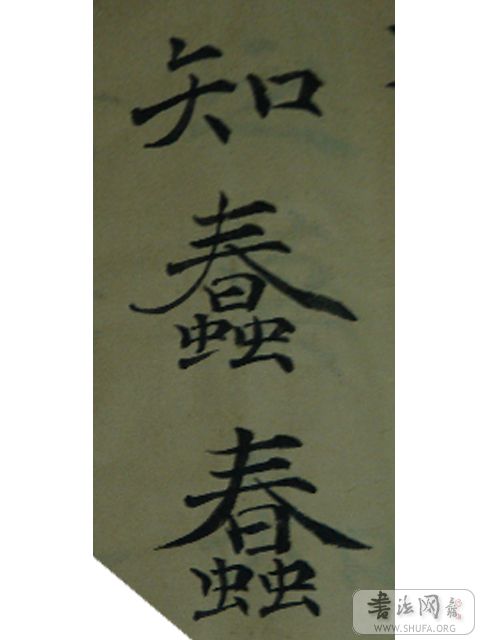 知蠢蠢
書法网
WWW.SHUFA.ORG